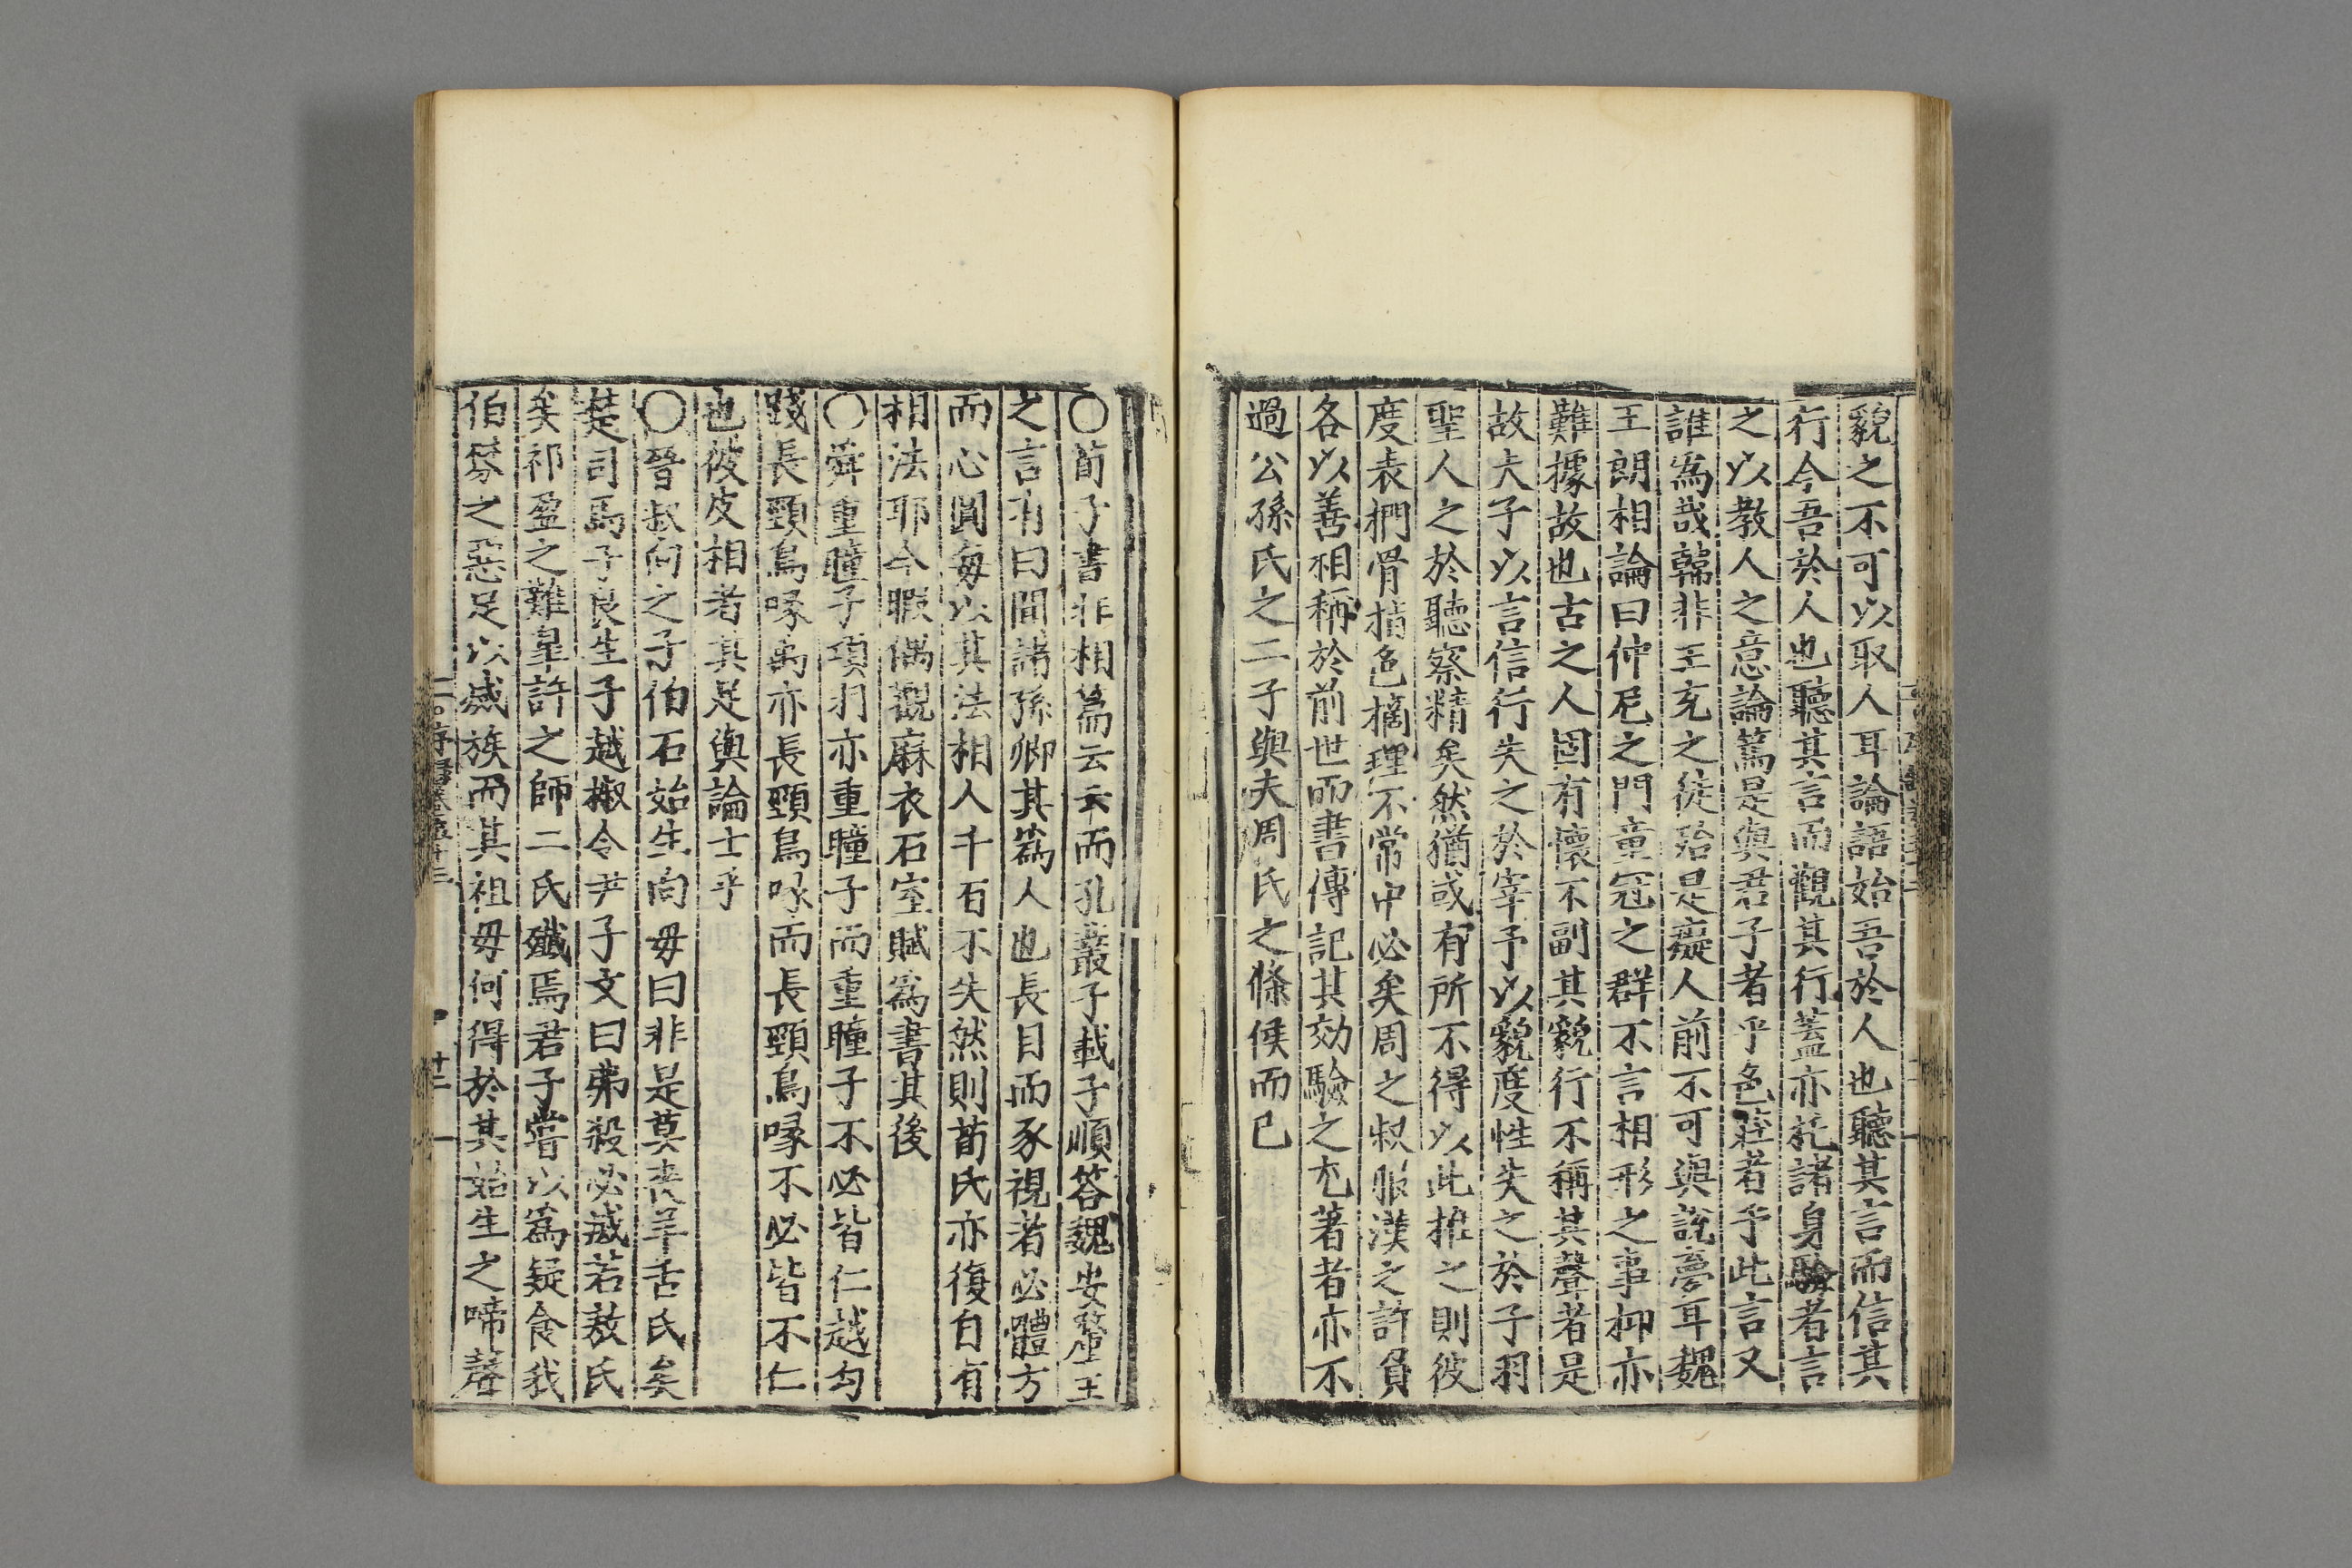 貌之不可以取人耳論語始吾於人也聽其言而信其
行今吾於人也聽其言而觀其行蓋亦託諸身驗者言
之以教人之意論篤是與君子者乎色莊者乎此言又
誰為哉韓非王充之徒殆是癡人前不可與說夢耳魏
王朗相論曰仲尼之門童冠之群不言相形之事抑亦
難據故也古之人固有懷不副其貌行不稱其聲者是
故夫子以言信行失之於宰予以貌度性失之於子羽
聖人之於聽察精矣然猶或有所不得以此推之則彼
度表捫骨指色摘理不常中必矣周之叔服漢之許負
各以善相稱於前世而書傳記其効驗之尤著者亦不
過公孫氏之二子與夫周氏之條侯而已
〇荀子書非相篇云云而孔叢子載子順答魏安釐王
之言有曰聞諸孫卿其爲人也長目而豕視者必體方
而心圓每以其法相人千百不失然則荀氏亦復自有
相法耶今暇偶觀麻衣石室賦爲書其後
〇舜重瞳子項羽亦重瞳子而重瞳子不必皆仁越勾
踐長頸鳥喙禹亦長頸鳥喙而長頸鳥喙不必皆不仁
也彼皮相者其足與論士乎
〇晉叔向之子伯石始生向母曰非是莫喪羊舌氏矣
楚司馬子良生子越椒令尹子文曰弗殺必滅若敖氏
矣祁盈之難皐滸之師二氏殲焉君子嘗以爲疑食我
伯棼之惡足以滅族而其祖母何得於其始生之啼聲
十二